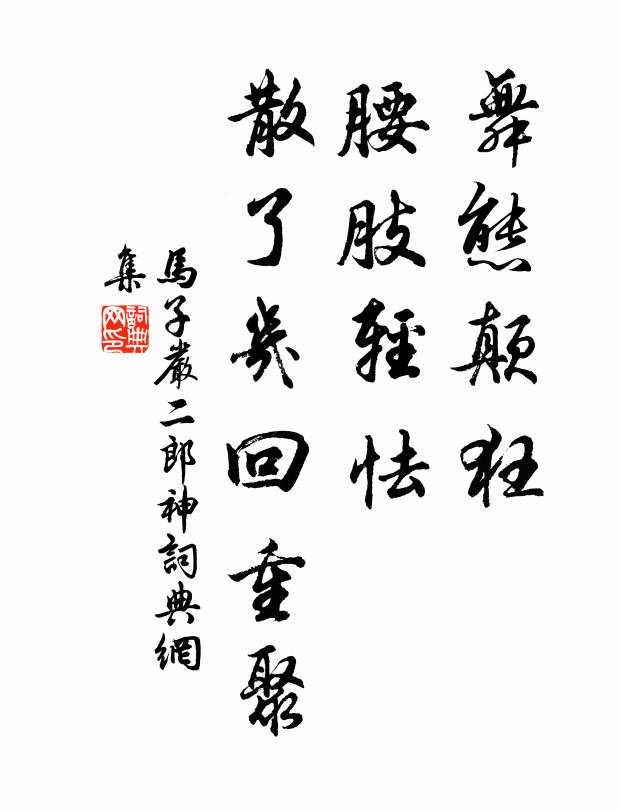 舞態顛狂
腰肢輕怯
散了幾回重聚
馬子嚴二郎神詞典網
集
詞典
网印